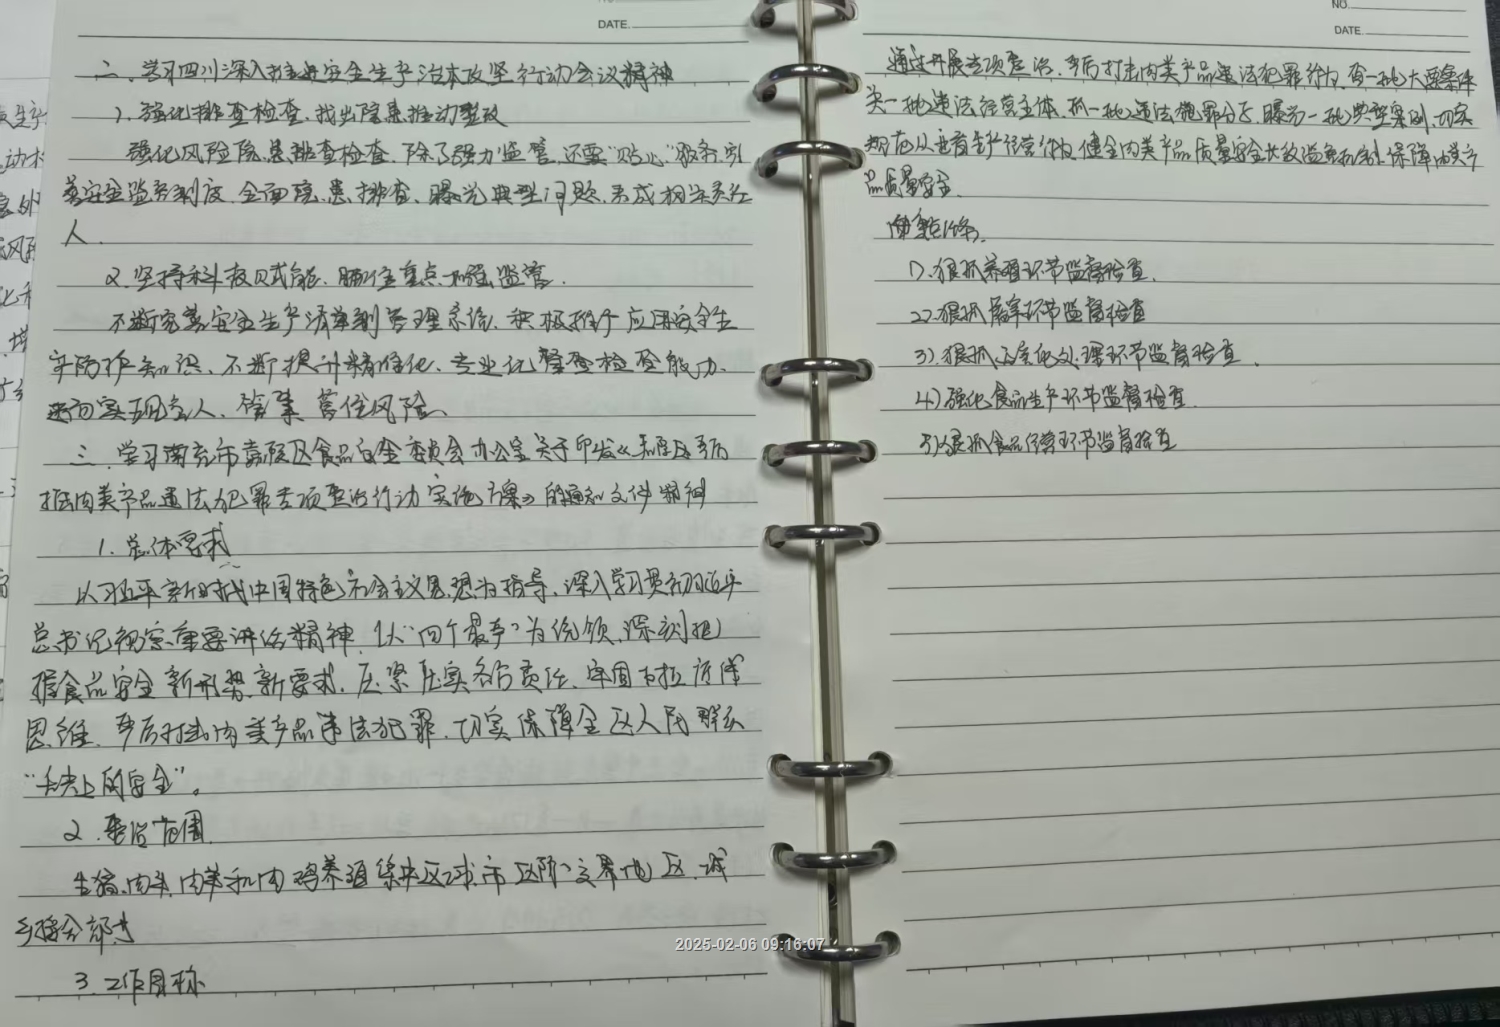 NO.
DATE.
二、学习四川深入推进安全生产治本攻坚行动会议精神
1、强化排查检查、找出隐患推动整改
强化风险隐患排查检查、除了强力监管、还要"贴心"服务、
安全监管制度、全面隐患排查、曝光典型问题、
人、
2、坚持科技赋能、盯住重点加强监管、
不断完善安全生产清单制管理系统、积极推行应用安全生
产防护知识、不断提升精准化、专业化督查检查能力、
进而实现 人、管 、管住风险、
三、学习南充市嘉陵区食品安全委员会办公室关于印发《嘉陵区严厉
打击肉类产品违法犯罪专项整治行动实施方案》的通知文件精神
1、总体要求
以习近平新时代中国特色社会主义思想为指导、深入学习贯彻习近平
总书记 重要讲话精神、以"四个最严"为统领、深刻把
握食品安全新形势新要求、压紧压实各方责任、牢固树立底线
思维、严厉打击肉类产品违法犯罪、切实保障全区人民群众
"舌尖上的安全"。
2、整治范围
生猪、肉牛、肉羊和肉鸡养殖 区域、市区 交界地区、城
乡接合部等
3、工作目标
NO.
DATE.
通过开展专项整治、严厉打击肉类产品违法犯罪行为、查一批大要案件
关一批违法经营主体、抓一批违法犯罪分子、曝光一批典型案例、切实
规范从业者生产经营行为、健全肉类产品质量安全长效监管机制、保障肉类产
品质量安全、
重点任务、
1)、狠抓养殖环节监督检查、
2)、狠抓屠宰环节监督检查
3)、狠抓无害化处理环节监督检查、
4)、强化食品生产环节监督检查、
5)、狠抓食品经营环节监督检查
2025-02-06 09:16:07